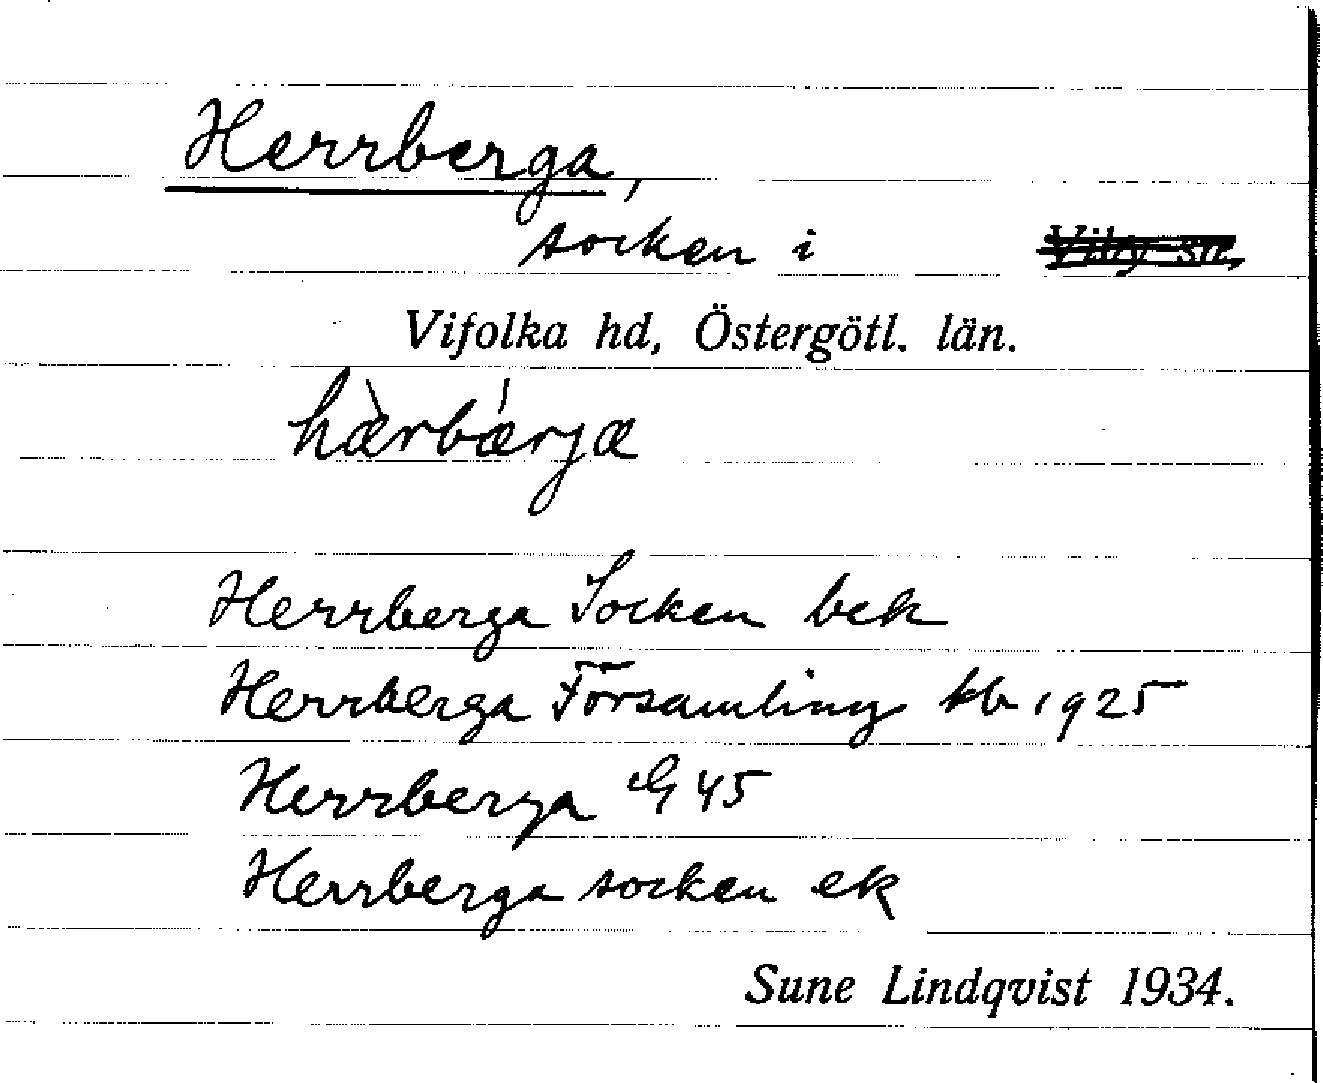 Herrberga,
socken i
Vifolka hd, Östergötl. län.
hæ̀rbǽrjα
Herrberga Socken bek
Herrberga Församling kb 1925
Herrberga G 45
Herrberga socken ek
Sune Lindqvist 1934.